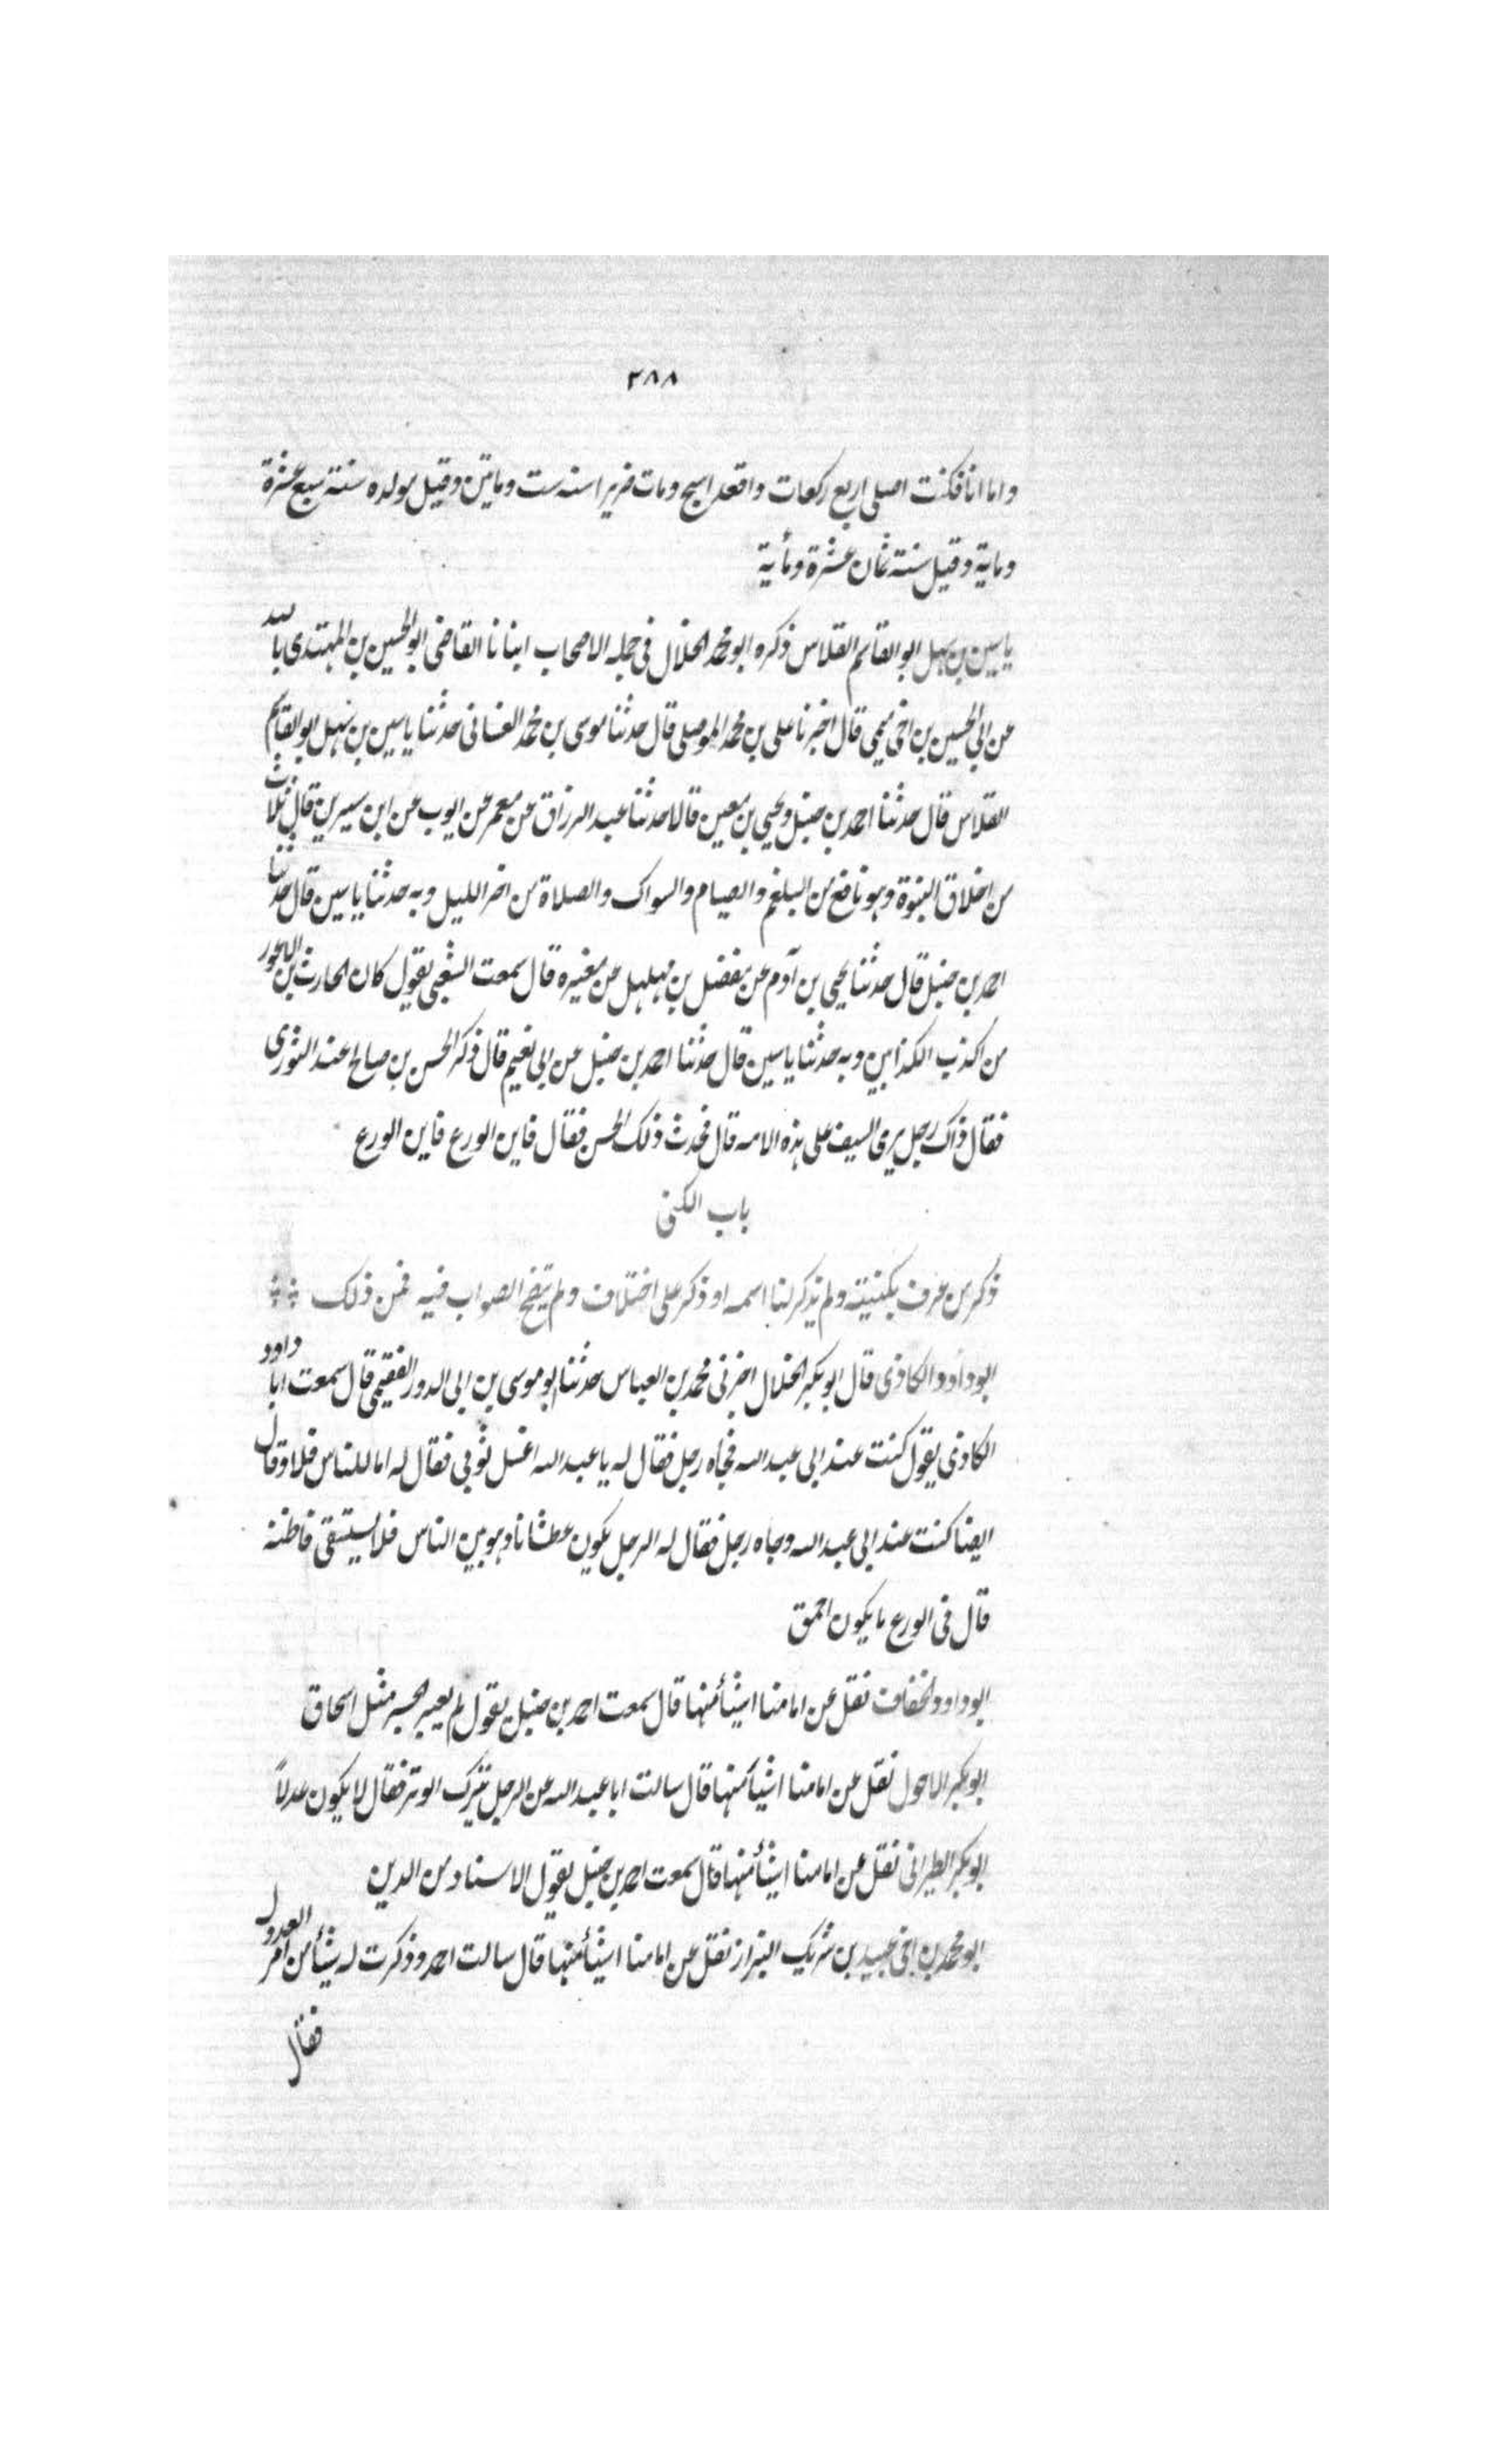 ٣٨٨
واما انا فكنت اصلى اربع ركعات واقعد اسبح ومات ضريرا سنه ست ومايتين وقيل مولده سنة سبع عشرة
وماية وقيل سنة ثمان عشرة ومأية
ياسين بن سهل ابو القاسم القلاس ذكره ابو محمد الخلال فى جمله الاصحاب انبانا القاضى ابو الحسين بن المهتدى بالله
عن ابى الحسين بن اخى ميمى قال اخبرنا على بن محمد الموصلى قال حدثنا موسى بن محمد الغسانى حدثنا ياسين بن سهل ابو القاسم
القلاس قال حدثنا احمد بن حنبل ويحيى بن معين قالا حدثنا عبد الرزاق عن معمر عن ايوب عن ابن سيرين قال ثلاث
من اخلاق النبوة وهو نافع من البلغم والصيام والسواك والصلاة من اخر الليل وبه حدثنا ياسين قال حدثنا
احمد بن حنبل قال حدثنا يحيى بن آدم عن مفضل بن مهلهل عن مغيره قال سمعت الشعبى يقول كان الحارث بن الاعور
من اكذب الكذابين وبه حدثنا ياسين قال حدثنا احمد بن حنبل عن ابى نعيم قال ذكر الحسن بن صالح عند الثورى
فقال ذاك رجل يرى السيف على هذه الامه قال فحدث ذلك الحسن فقال فاين الورع فاين الورع
باب الكنى
ذكر من عرف بكنيته ولم يذكر لنا اسمه او ذكر على اختلاف ولم يتضح الصواب فيه فمن ذلك
ابو داود الكاذى قال ابو بكر الخلال اخبرنى محمد بن العباس حدثنا ابو موسى بن ابى الدور الفقيمى قال سمعت ابا داود
الكاذى يقول كنت عند ابى عبد الله فجاه رجل فقال له يا عبد الله اغسل ثوبى فقال له اما للناس فلا وقال
ايضا كنت عند ابى عبد الله وجاه رجل فقال له الرجل يكون عطشانا وهو بين الناس فلا يستسقى فاظنه
قال فى الورع ما يكون احمق
ابو داود الخفاف نقل عن امامنا اشيأ منها قال سمعت احمد بن حنبل يقول لم يعبر الجسر مثل اسحاق
ابو بكر الاحول نقل عن امامنا اشيأ منها قال سالت ابا عبد الله عن الرجل يترك الوتر فقال لا يكون عدلاً
ابو بكر الطبرانى نقل عن امامنا اشيأ منها قال سمعت احمد بن حنبل يقول الاسناد من الدين
ابو محمد بن اخى عبيد بن شريك البزاز نقل عن امامنا اشيأ منها قال سالت احمد وذكرت له شيأ من امر العدول
فقال